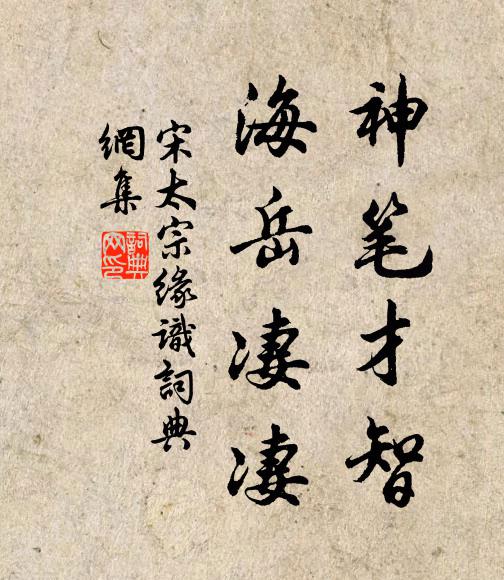 神笔才智
海岳凄凄
宋太宗缘識詞典
網集
詞典
网印